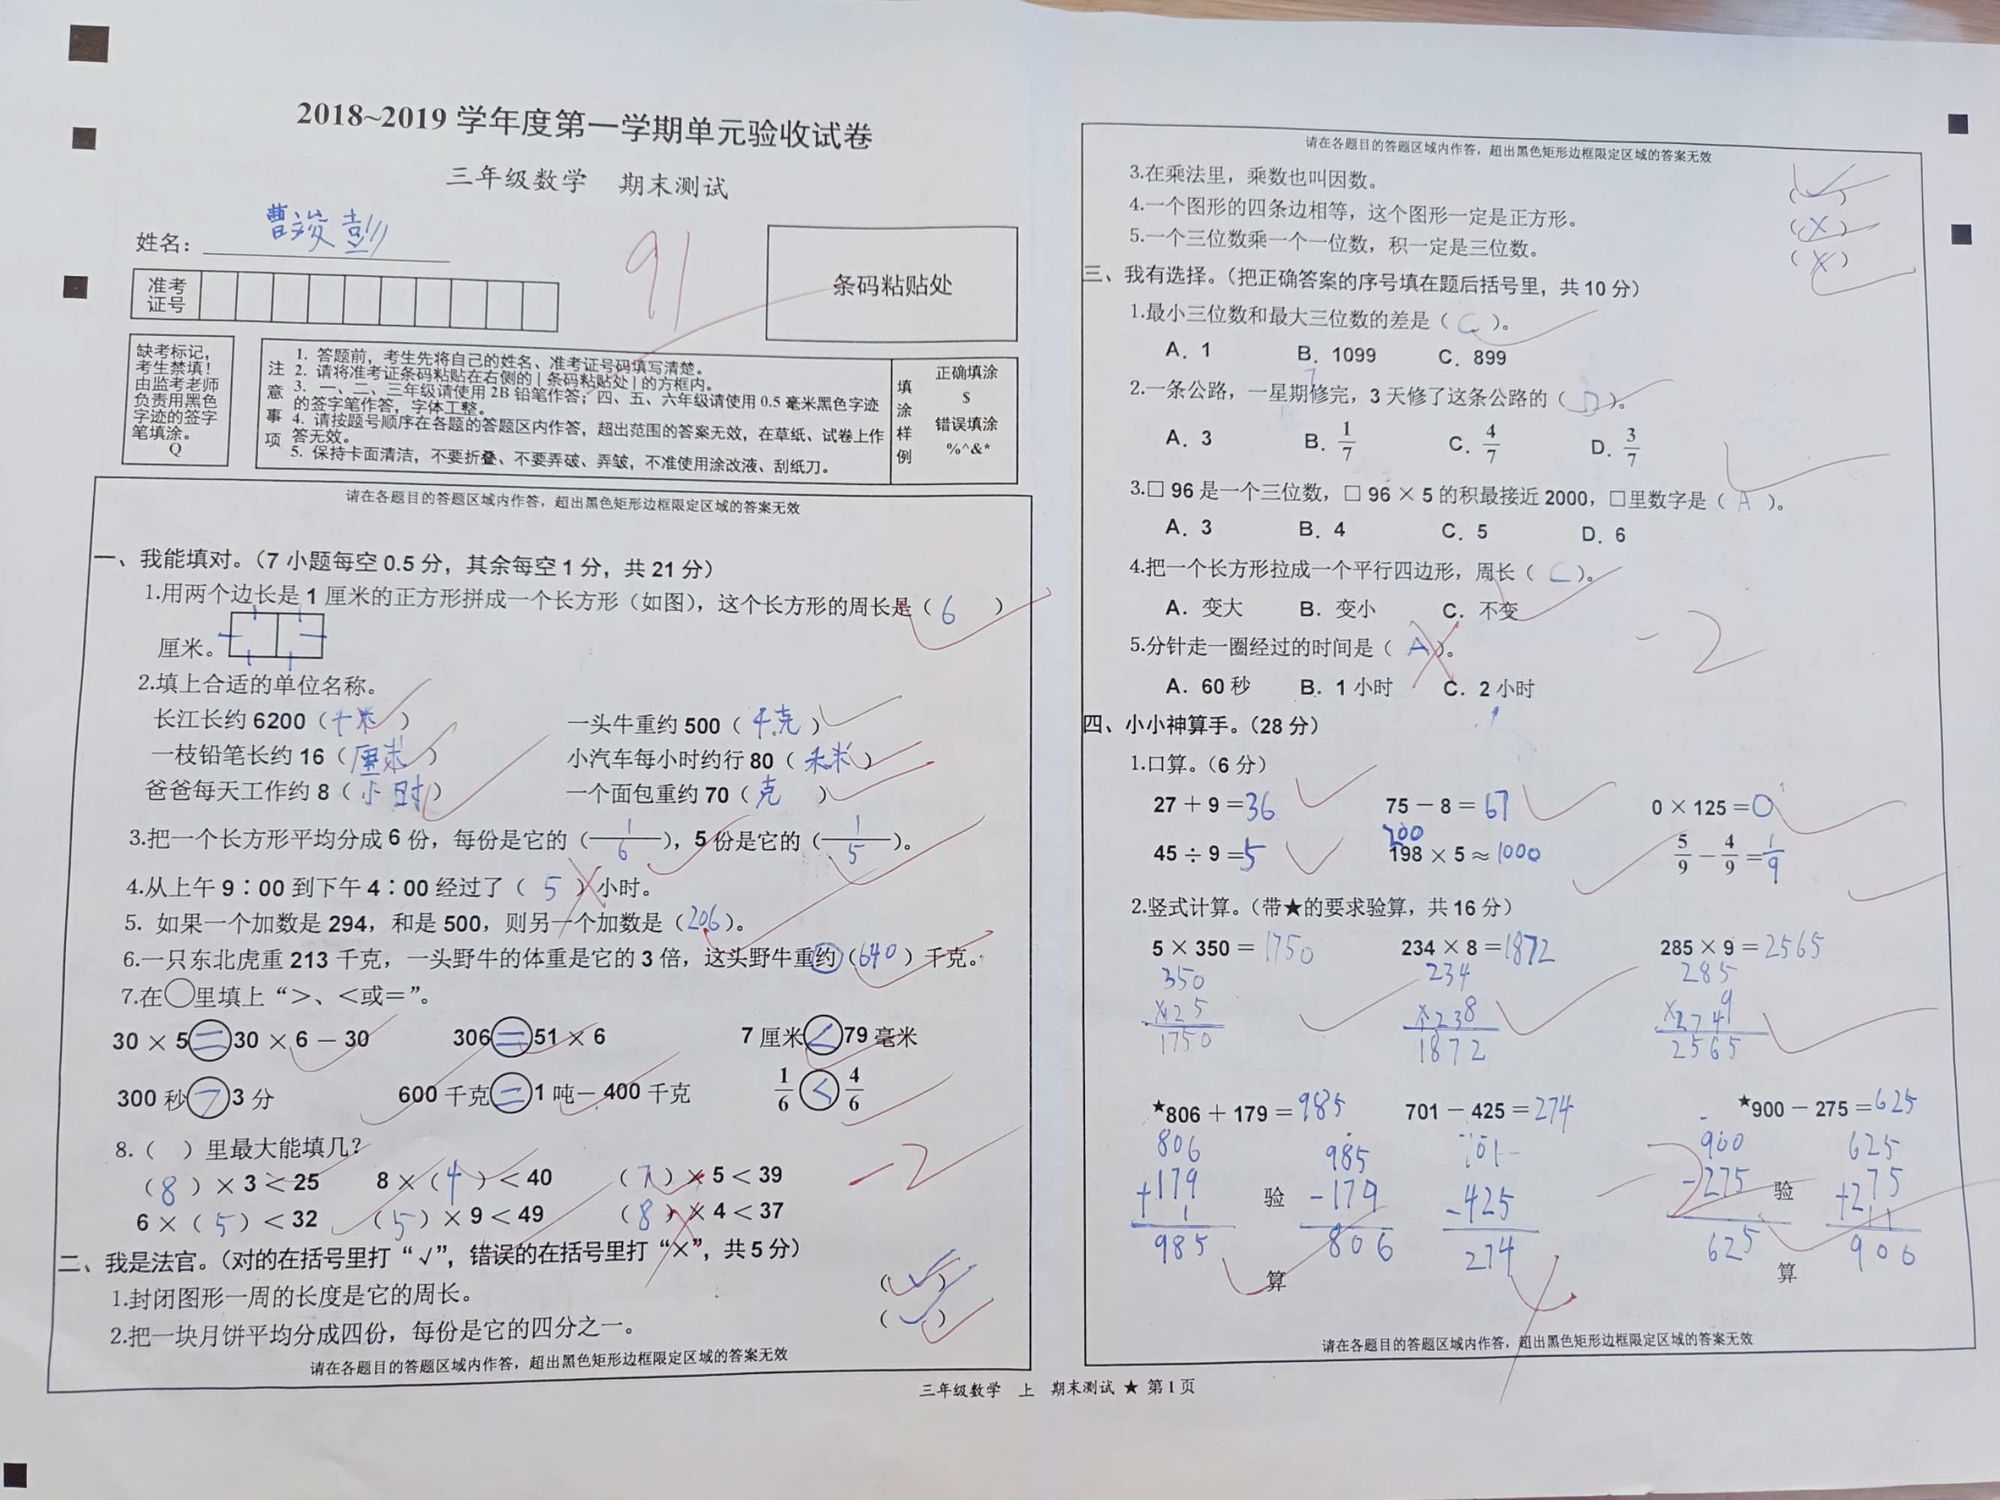 2018~2019 学年度第一学期单元验收试卷
三年级数学 期末测试
姓名：曹浚彭
91
准考证号
条码粘贴处
缺考标记，
考生禁填！
由监考老师
负责用黑色
字迹的签字
笔填涂。
Q
注意事项
1. 答题前，考生先将自己的姓名、准考证号码填写清楚。
2. 请将准考证条码粘贴在右侧的[条码粘贴处]的方框内。
3. 一、二、三年级请使用 2B 铅笔作答；四、五、六年级请使用 0.5 毫米黑色字迹
的签字笔作答，字体工整。
4. 请按题号顺序在各题的答题区内作答，超出范围的答案无效，在草纸、试卷上作
答无效。
5. 保持卡面清洁，不要折叠、不要弄破、弄皱，不准使用涂改液、刮纸刀。
填涂样例
正确填涂
$
错误填涂
%^&*
请在各题目的答题区域内作答，超出黑色矩形边框限定区域的答案无效
一、我能填对。（7 小题每空 0.5 分，其余每空 1 分，共 21 分）
1.用两个边长是 1 厘米的正方形拼成一个长方形（如图），这个长方形的周长是（ 6 ）
厘米。
2.填上合适的单位名称。
长江长约 6200（千米） 一头牛重约 500（千克）
一枝铅笔长约 16（厘米） 小汽车每小时约行 80（ 米 ）
爸爸每天工作约 8（小时） 一个面包重约 70（克）
3.把一个长方形平均分成 6 份，每份是它的（1/6），5 份是它的（1/5）。
4.从上午 9：00 到下午 4：00 经过了（ 5 ）小时。
5. 如果一个加数是 294，和是 500，则另一个加数是（206）。
6.一只东北虎重 213 千克，一头野牛的体重是它的 3 倍，这头野牛重约（640）千克。
7.在○里填上“>、<或=”。
30 × 5 = 30 × 6 － 30 306 = 51 × 6 7 厘米 < 79 毫米
300 秒 > 3 分 600 千克 = 1 吨－ 400 千克 1/6 < 4/6
8.（ ）里最大能填几？
（8）× 3 < 25 8 ×（4）< 40 （7）× 5 < 39
-2
6 ×（5）< 32 （5）× 9 < 49 （8）× 4 < 37
二、我是法官。（对的在括号里打“√”，错误的在括号里打“×”，共 5 分）
1.封闭图形一周的长度是它的周长。（√）
2.把一块月饼平均分成四份，每份是它的四分之一。（√）
请在各题目的答题区域内作答，超出黑色矩形边框限定区域的答案无效
请在各题目的答题区域内作答，超出黑色矩形边框限定区域的答案无效
3.在乘法里，乘数也叫因数。（√）
4.一个图形的四条边相等，这个图形一定是正方形。（×）
5.一个三位数乘一个一位数，积一定是三位数。（×）
三、我有选择。（把正确答案的序号填在题后括号里，共 10 分）
1.最小三位数和最大三位数的差是（ C ）。
A．1 B．1099 C．899
7
2.一条公路，一星期修完，3 天修了这条公路的（ D ）。
A．3 B．1/7 C．4/7 D．3/7
3.□ 96 是一个三位数，□ 96 × 5 的积最接近 2000，□里数字是（ A ）。
A．3 B．4 C．5 D．6
4.把一个长方形拉成一个平行四边形，周长（ C ）。
A．变大 B．变小 C．不变
-2
5.分针走一圈经过的时间是（ A ）。
A．60 秒 B．1 小时 C．2 小时
四、小小神算手。（28 分）
1.口算。（6 分）
27 + 9 = 36 75 － 8 = 67 0 × 125 = 0
200
45 ÷ 9 = 5 198 × 5 ≈ 1000 5/9 － 4/9 = 1/9
2.竖式计算。（带★的要求验算，共 16 分）
5 × 350 = 1750 234 × 8 = 1872 285 × 9 = 2565
350 234 285
×25 ×238 ×2749
1750 1872 2565
★806 + 179 = 985 701 － 425 = 274 ★900 － 275 = 625
806 985 701 900 625
+179 验 -179 -425 -275 验 +275
985 806 274 625 900
算 算
请在各题目的答题区域内作答，超出黑色矩形边框限定区域的答案无效
三年级数学 上 期末测试 ★ 第 1 页